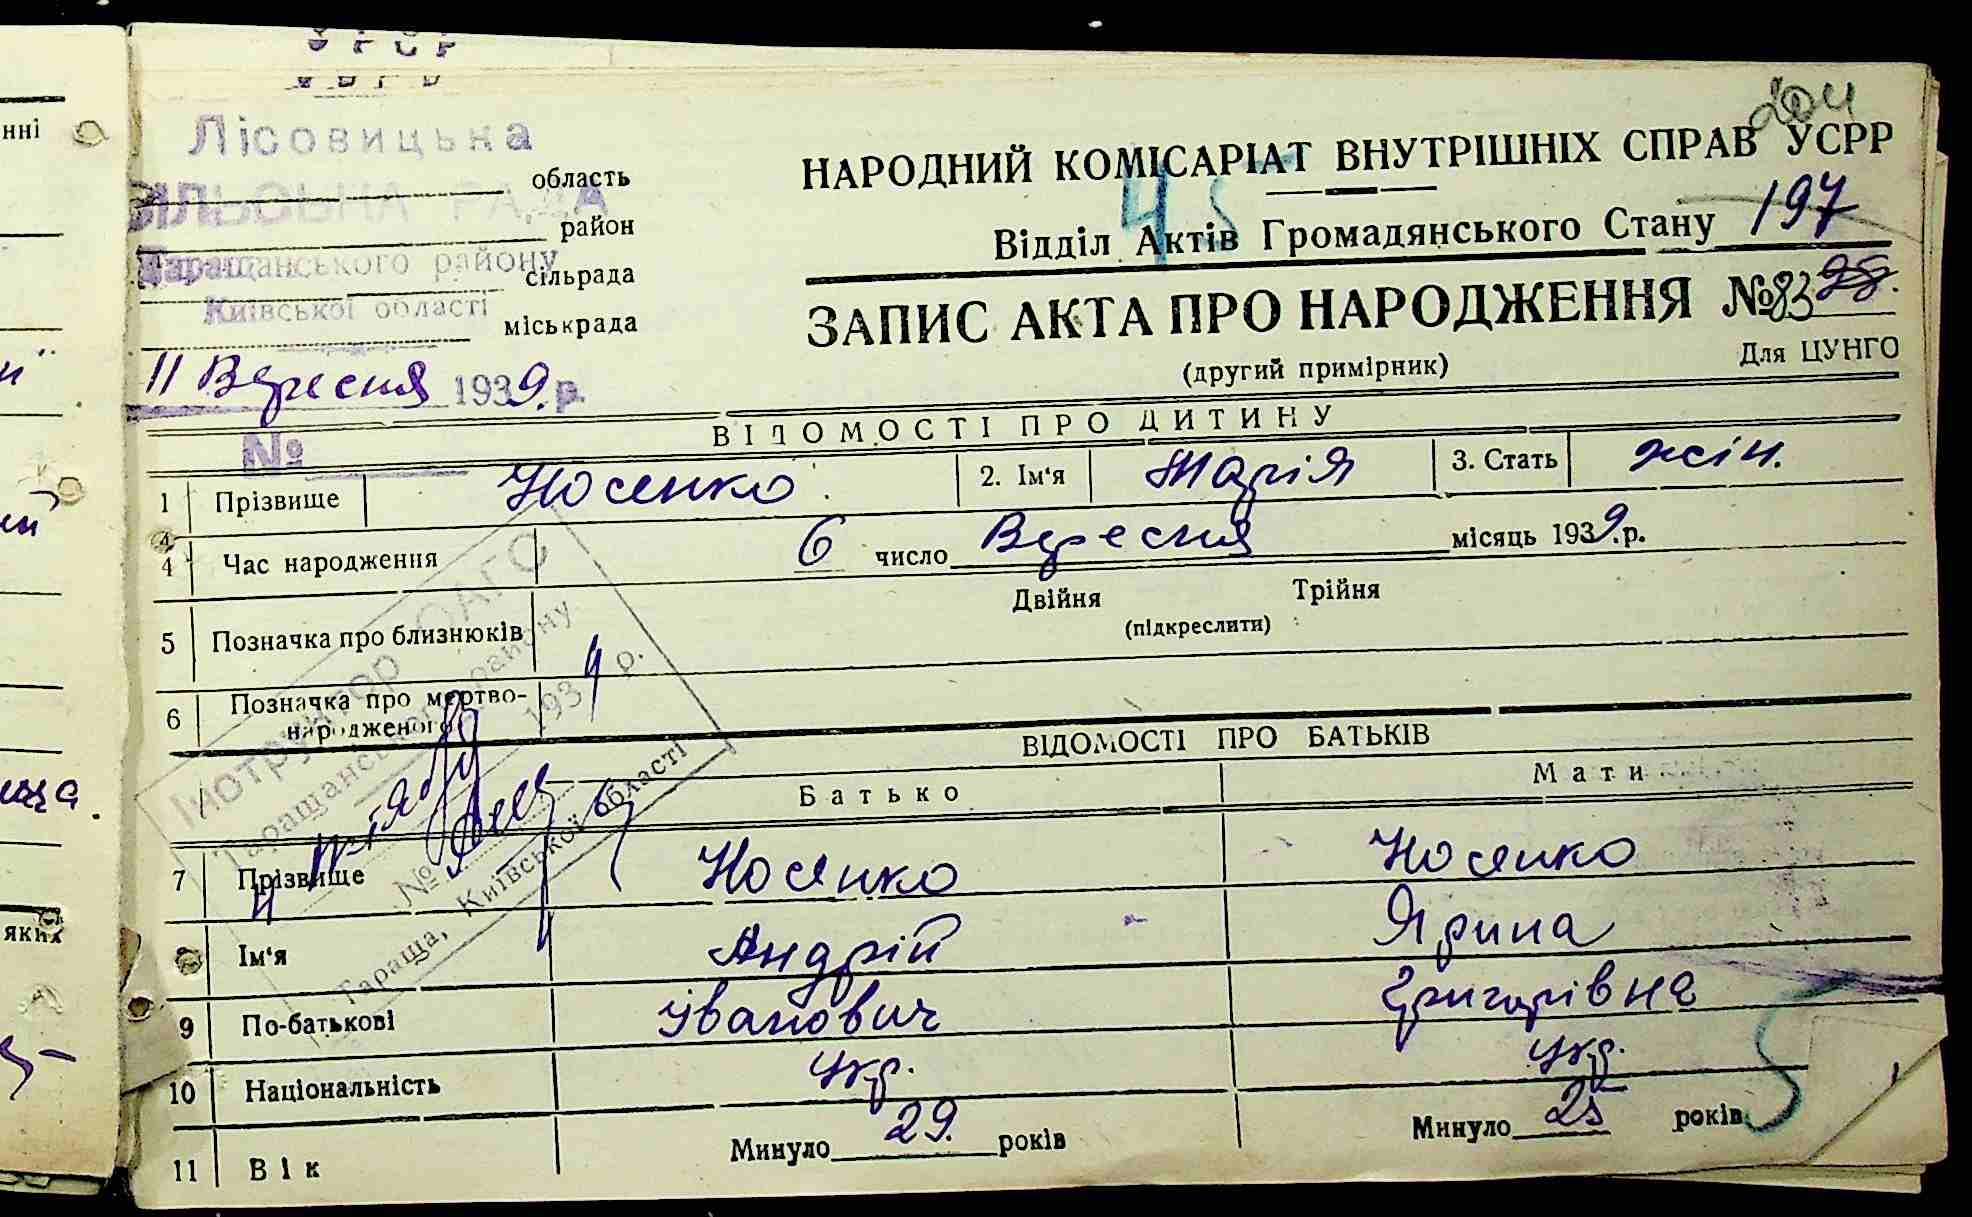 УРСР
НКВД
204
Лісовицька
СІЛЬСЬКА РАДА
Таращанського району
Київської області
область
район
сільрада
міськрада
11 Вересня 1939.р.
№
НАРОДНИЙ КОМІСАРІАТ ВНУТРІШНІХ СПРАВ УСРР
45
Відділ Актів Громадянського Стану 197
ЗАПИС АКТА ПРО НАРОДЖЕННЯ №83
(другий примірник) Для ЦУНГО
ВІДОМОСТІ ПРО ДИТИНУ
1 Прізвище Носенко 2. Ім'я Марія 3. Стать жін.
4 Час народження 6 число Вересня місяць 1939.р.
5 Позначка про близнюків Двійня Трійня
(підкреслити)
6 Позначка про мертво-
народженого
ВІДОМОСТІ ПРО БАТЬКІВ
Батько Мати
7 Прізвище Носенко Носенко
Ім'я Андрій Ярина
9 По-батькові Іванович Григорівна
10 Національність укр. укр.
11 Вік Минуло 29. років Минуло 25 років
ОАГС
Таращанського
193 р.
№
Тараща, Київської області
нні
яких